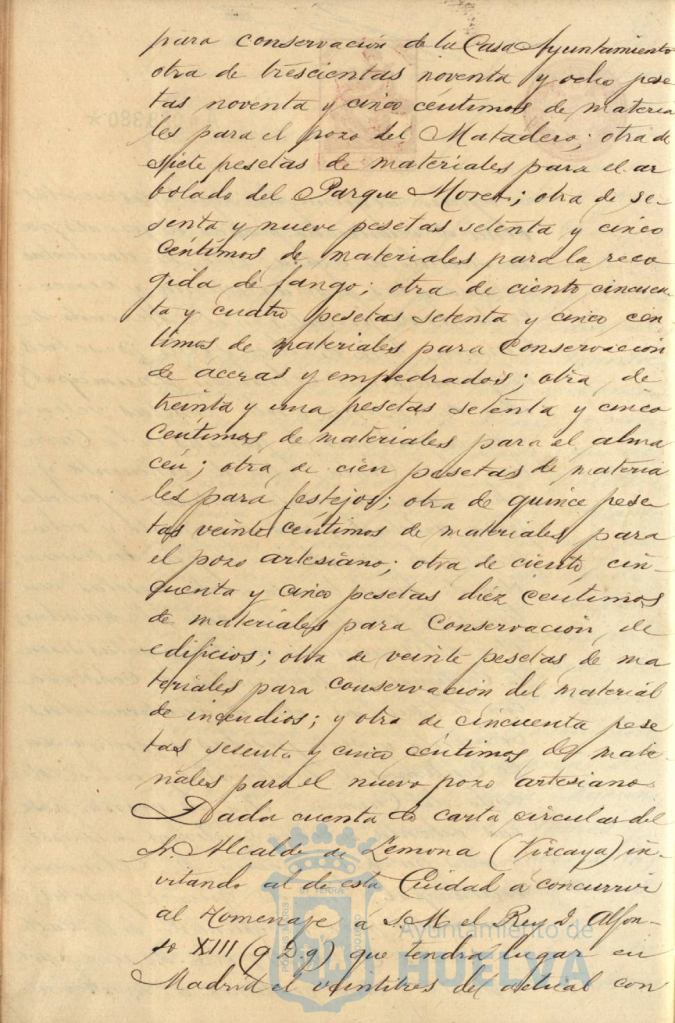 para conservación de la Casa Ayuntamiento
otra de trescientas noventa y ocho pese
tas noventa y cinco céntimos de materia
les para el pozo del Matadero; otra de
siete pesetas de materiales para el ar
bolado del Parque Moret; otra de se-
senta y nueve pesetas setenta y cinco
céntimos de materiales para la reco
gida de fango; otra de ciento cincuen
ta y cuatro pesetas setenta y cinco cen
timos de materiales para conservación
de aceras y empedrados; otra de
treinta y una pesetas setenta y cinco
céntimos de materiales para el alma
cén; otra de cien pesetas de materia
les para festejos; otra de quince pese
tas veinte centimos de materiales para
el pozo artesiano; otra de ciento cin-
quenta y cinco pesetas diez centimos
de materiales para conservación de
edificios; otra de veinte pesetas de ma
teriales para conservación del material
de incendios; y otra de cincuenta pese
tas sesenta y cinco céntimos de mate-
riales para el nuevo pozo artesiano
Dada cuenta de carta circular del
Sr. Alcalde de Lemona (Vizcaya) in
vitando al de esta Ciudad á concurrir
al Homenaje á S. M. el Rey D. Alfon-
so XIII (q D. g) que tendrá lugar en
Madrid el veintitres del actual con
Ayuntamiento de
HUELVA